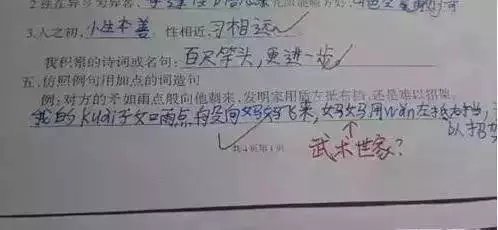 3.人之初,小生本善。性相近,习相远。
我积累的诗词或名句:百尺竿头,更进一步。
五、仿照例句用加点的词造句
例:对方的矛如雨点般向他刺来,发明家用盾左抵右挡,还是难以招架。
我的kuài子如雨点般向妈妈飞来,妈妈用wǎn左抵右挡,
以招架
共4页第1页
武术世家?